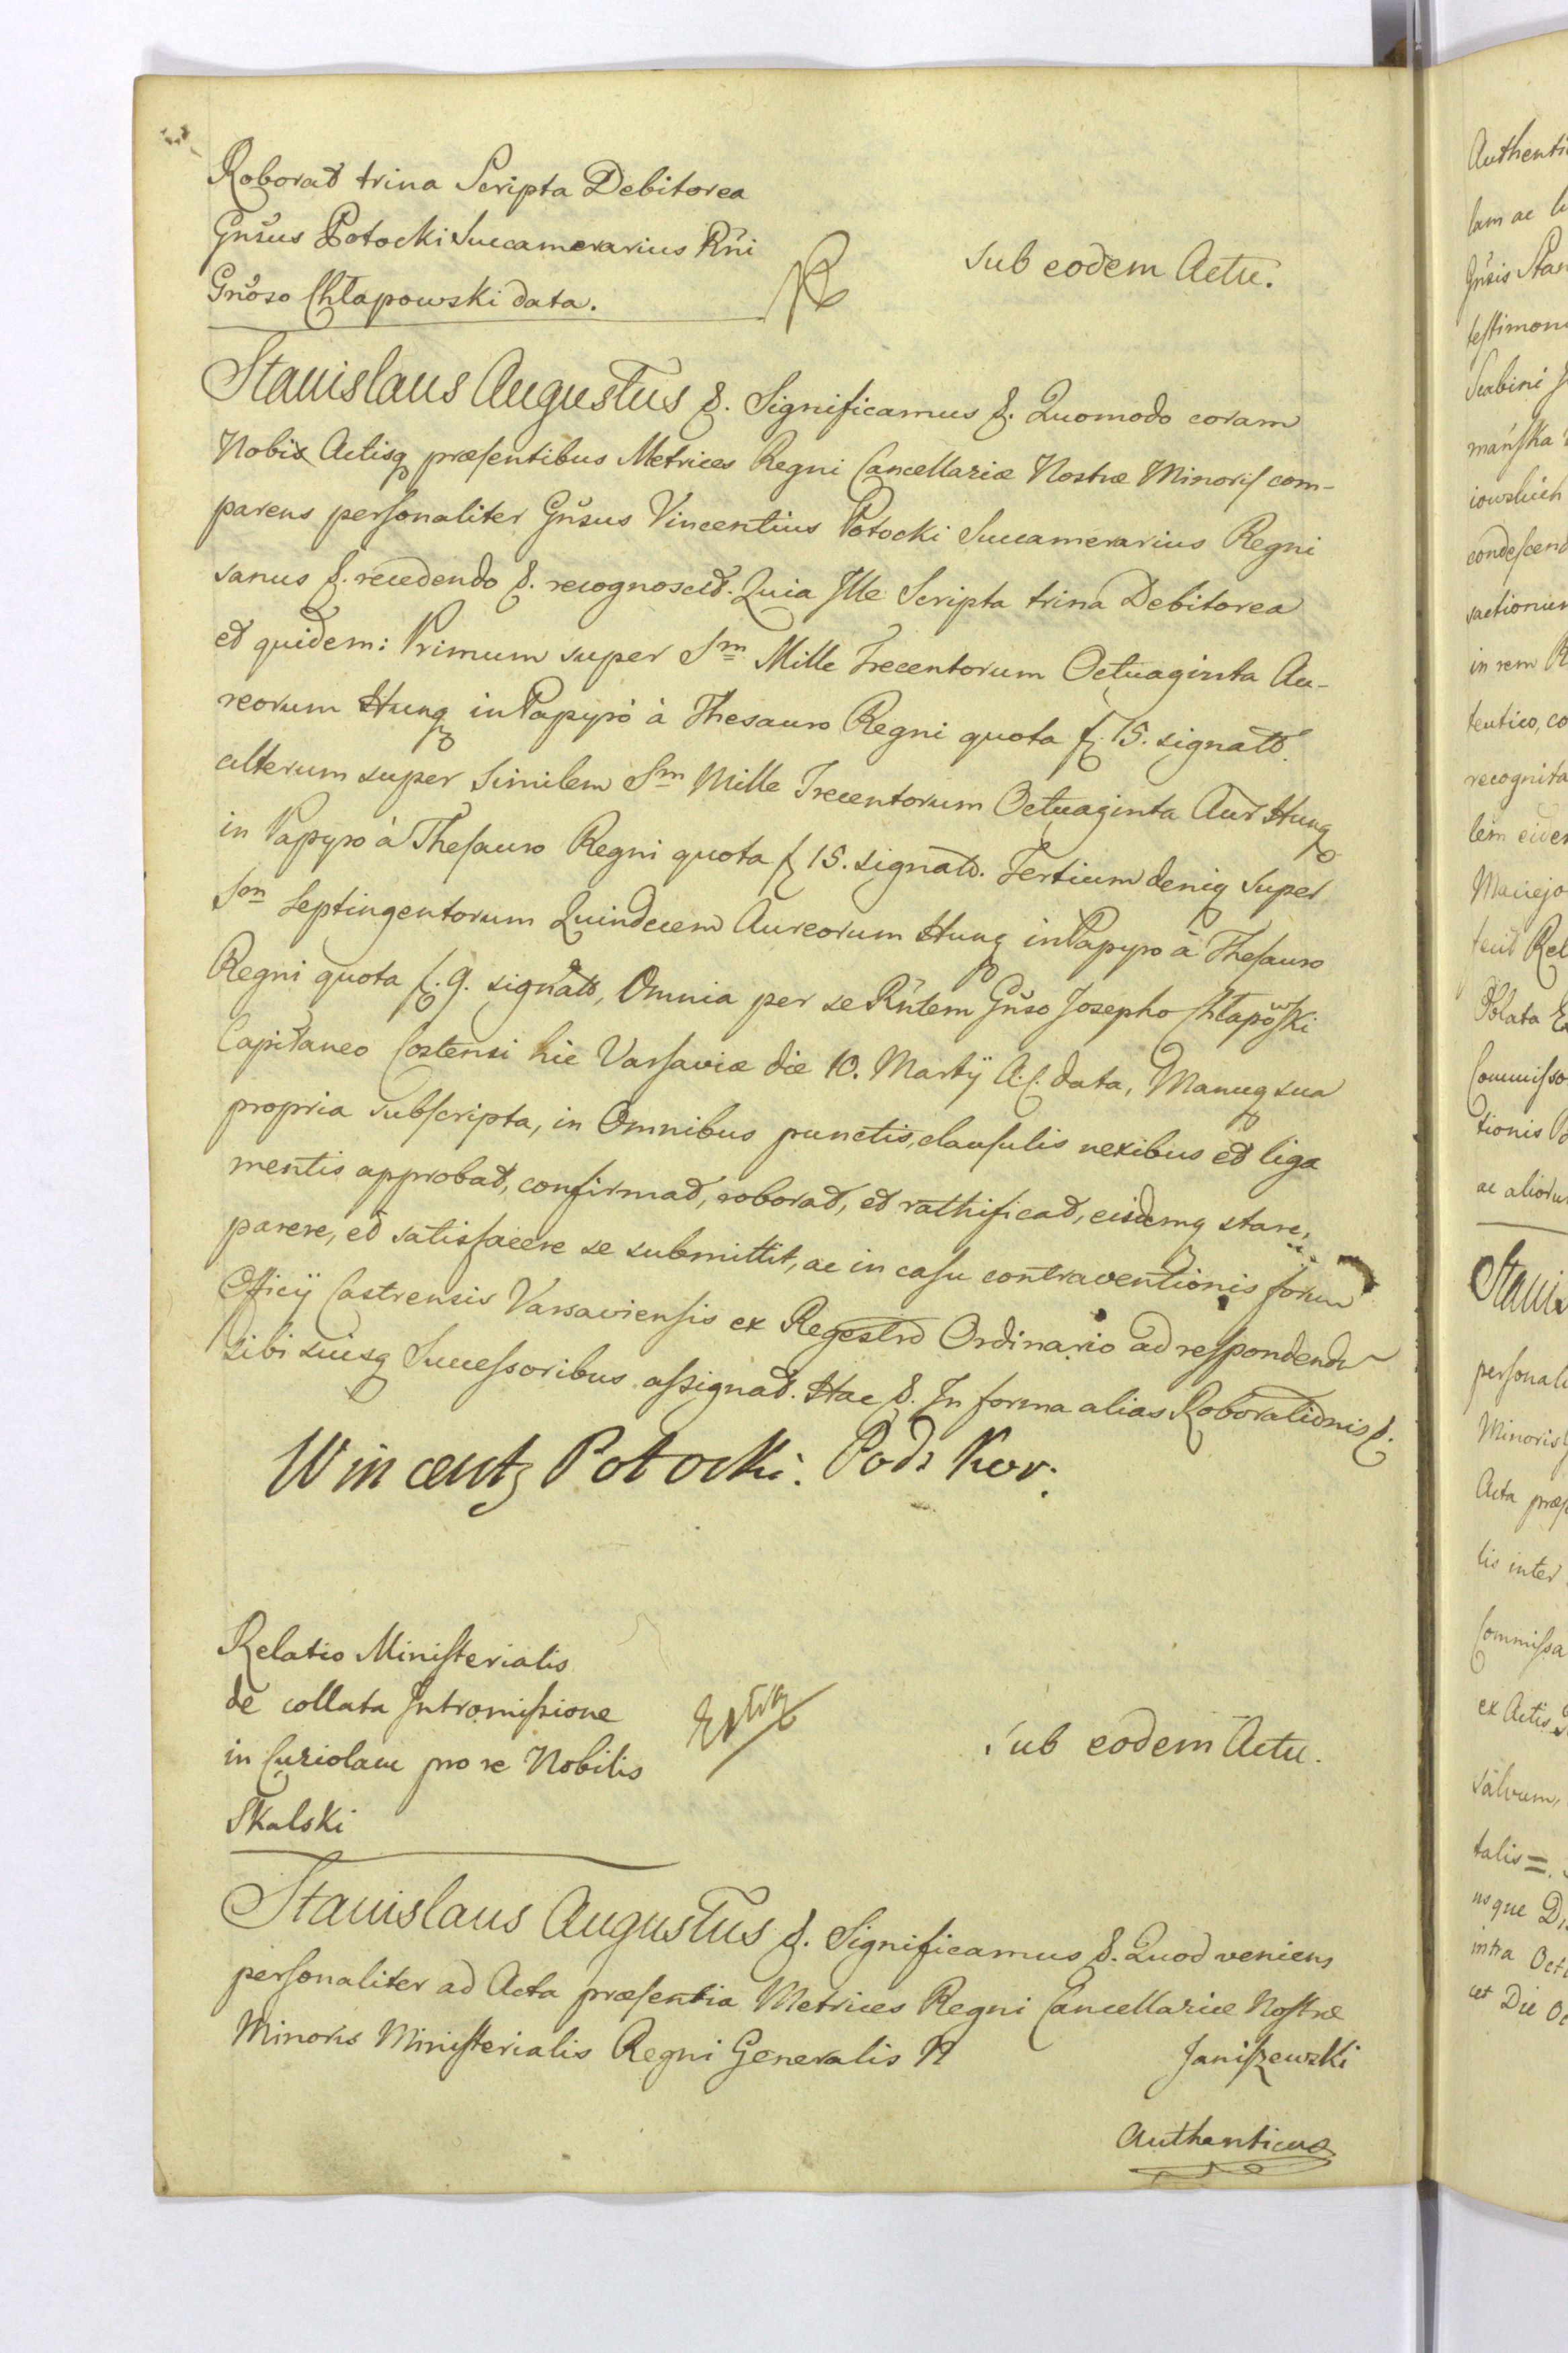 Roborat trina Scripta Debitorea
Gnsus Potocki Succamerarius Rni
Gnoso Chłapowski data.
Sub eodem Actu.
Stanislaus Augustus &. Significamus &. Quomodo coram
Nobis Actisq præsentibus Metrices Regni Cancellariæ Nostræ Minoris com-
parens personaliter Gnsus Vincentius Potocki Succamerarius Regni
sanus &. recedendo &. recognoscit. Quia Ille Scripta trina Debitorea
et quidem: Primum super Sm Mille Trecentorum Octuaginta Au-
reorum Hung in Papyro à Thesauro Regni quota f. 15. signatto.
alterum super Similem Sm Mille Trecentorum Octuaginta Aur Hung
in Papyro à Thesauro Regni quota f 15. signato. Tertium deniq super
Sm Septingentorum Quindecem Aureorum Hung in Papyro à Thesauro
Regni quota f. 9. signato, Omnia per se Rntem Gnso Josepho Chłapowski
Capitaneo Costensi hic Varsaviæ die 10. Martÿ A: C. data, Manuq sua
propria subscripta, in Omnibus punctis, clausulis nexibus et liga
mentis approbat, confirmat, roborat, et rathificat, eisdemq stare,
parere, et satisfacere se submittit, ac in casu contraventionis forum
Officÿ Castrensis Varsaviensis ex Regestro Ordinario ad respondendu
Sibi suisq Successoribus assignat. Hac &. In forma alias Roborationis &.
Wincenty Potocki. Pod: Kor:
Relatio Ministerialis
de collata Intromissione
in Curiolam pro re Nobilis
Skalski
Sub eodem Actu.
Stanislaus Augustus &. Significamus &. Quod veniens
personaliter ad Acta præsentia Metrices Regni Cancellariæ Nostræ
Minoris Ministerialis Regni Generalis N
Janiszewski
Authenticus
Authenti
lam ac
Gnsis Stan
testimoni
Scabini
mańska
iowskich
condescend
sactionum
in rem
tentico, co
recognita
lem eiden
Maciejo
fecit Rel
Oblata
Commisso
tionis
ac alioru
Stanis
personali
Minoris
Acta præs
lis inter
Commissa
ex Actis
salvum,
talis =
usque Di
intra Oct
cet Die Oc